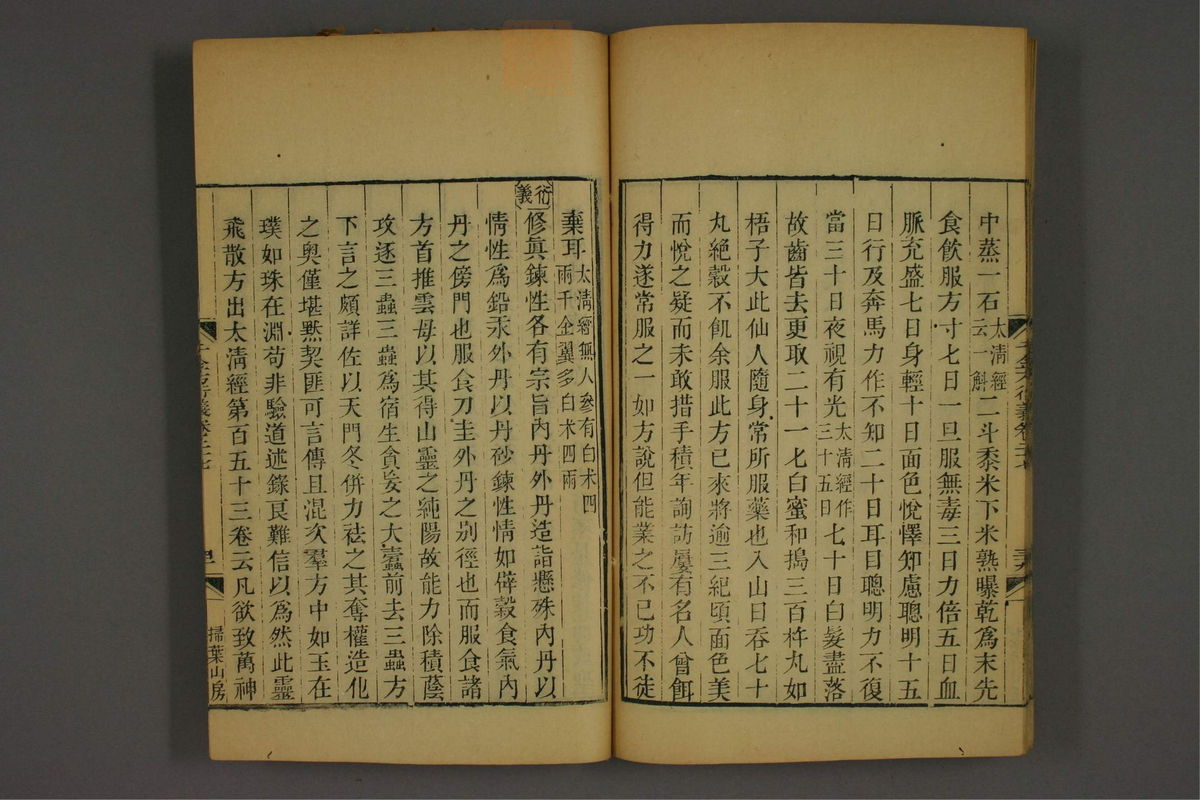 中蒸一石太清經云一斛二斗黍米下米熟曝乾為末先
食飲服方寸匕日一旦服無毒三日力倍五日血
脈充盛七日身輕十日面色悅懌知慮聰明十五
日行及奔馬力作不知二十日耳目聰明力不復
當三十日夜視有光太清經作三十五日七十日白髮盡落
故齒皆去更取二十一匕白蜜和搗三百杵丸如
梧子大此仙人隨身常所服藥也入山日吞七十
丸絕穀不飢余服此方已來將逾三紀頃面色美
而悅之疑而未敢措手積年詢訪屢有名人曾餌
得力遂常服之一如方說但能業之不已功不徒
棄耳太清經無人參有白朮四兩千金翼多白朮四兩
衍義修真鍊性各有宗旨內丹外丹造詣懸殊內丹以
情性為鉛汞外丹以丹砂鍊性情如辟穀食氣內
丹之傍門也服食刀圭外丹之別徑也而服食諸
方首推雲母以其得山靈之純陽故能力除積蔭
攻逐三蟲三蟲為宿生貪妄之大蠹前去三蟲方
下言之頗詳佐以天門冬併力祛之其奪權造化
之奧僅堪默契匪可言傳且混次羣方中如玉在
璞如珠在淵苟非驗道述錄艮難信以為然此靈
飛散方出太清經第百五十三卷云凡欲致萬神
掃葉山房